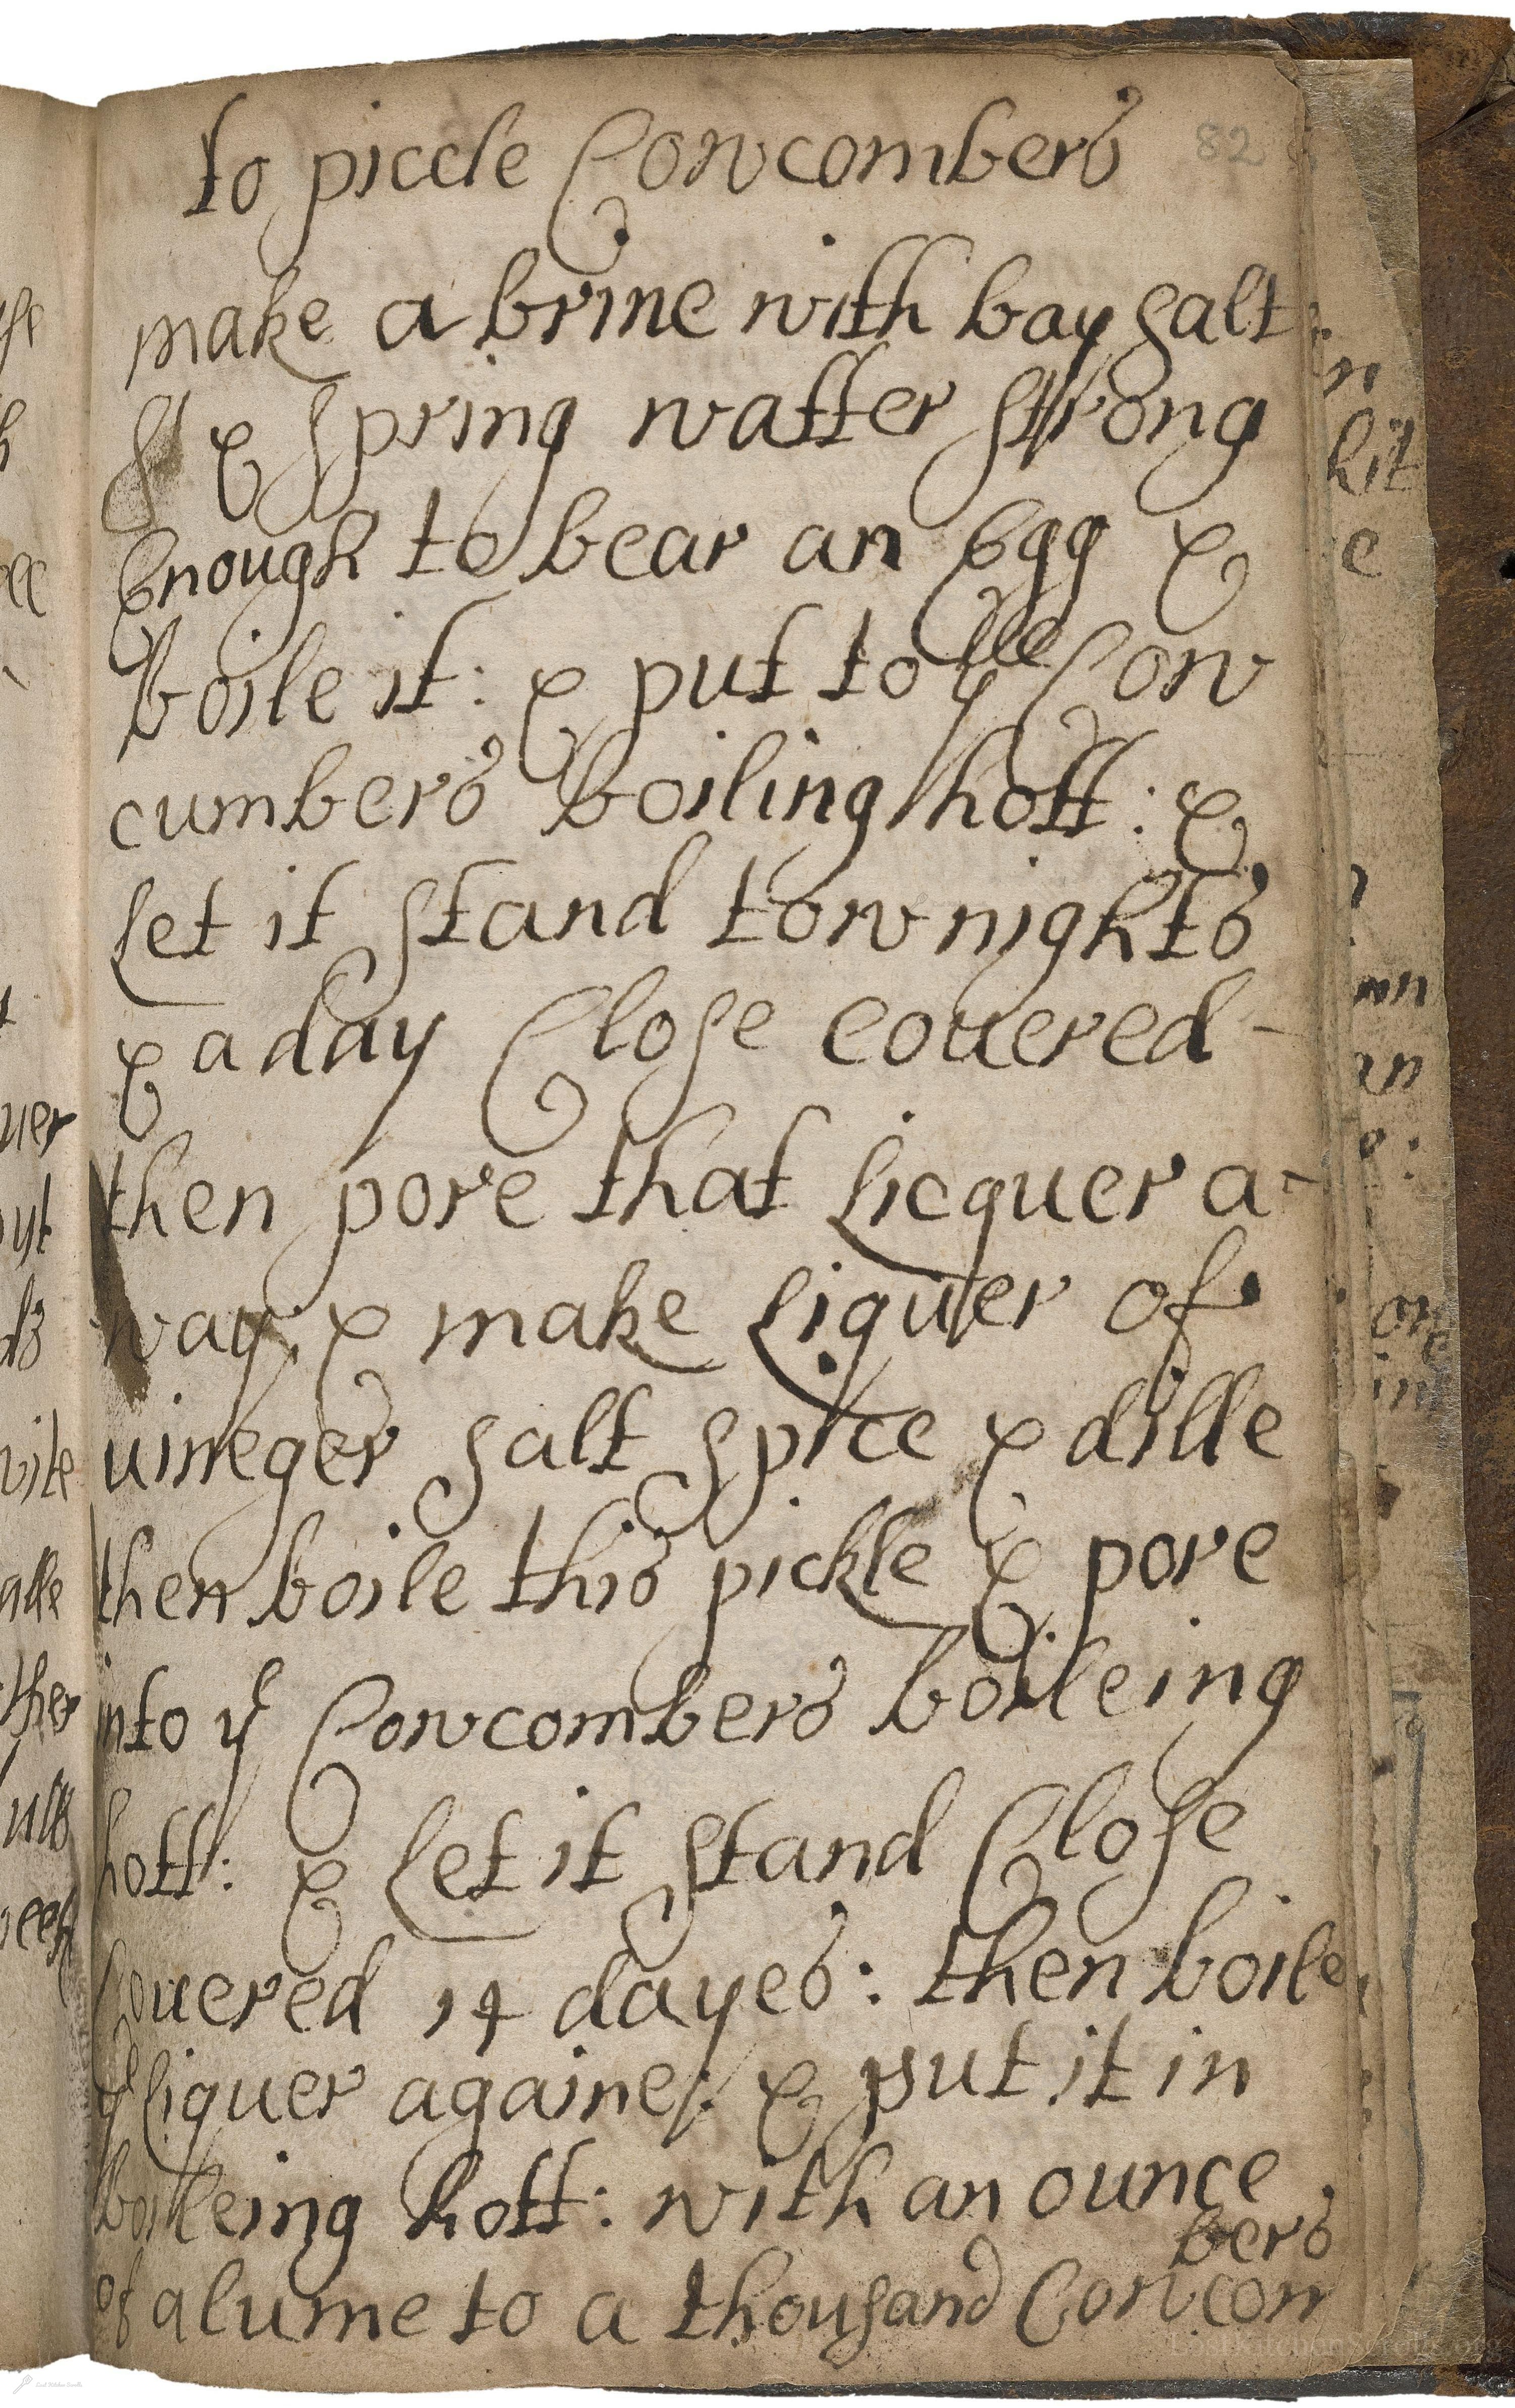 to piccle Cowcombers 82
make a brine with bay salt
& & spring watter strong
Enough to bear an Egg &
boile it: & put to yee Cow
cumbers boiling hott: &
Let it stand tow nights
& a day Close couered -
then pore that Licquer a-
way & make Liquer of
uineger salt spice & dille
then boile this pickle & pore
into ye Cowcombers boileing
hott: & Let it stand Close
Couered 14 dayes: then boile
ye liquer againe: & put it in
boileing hott: with an ounce
of alume to a thousand Cowcom
bers
LostKitchenScrolls.org